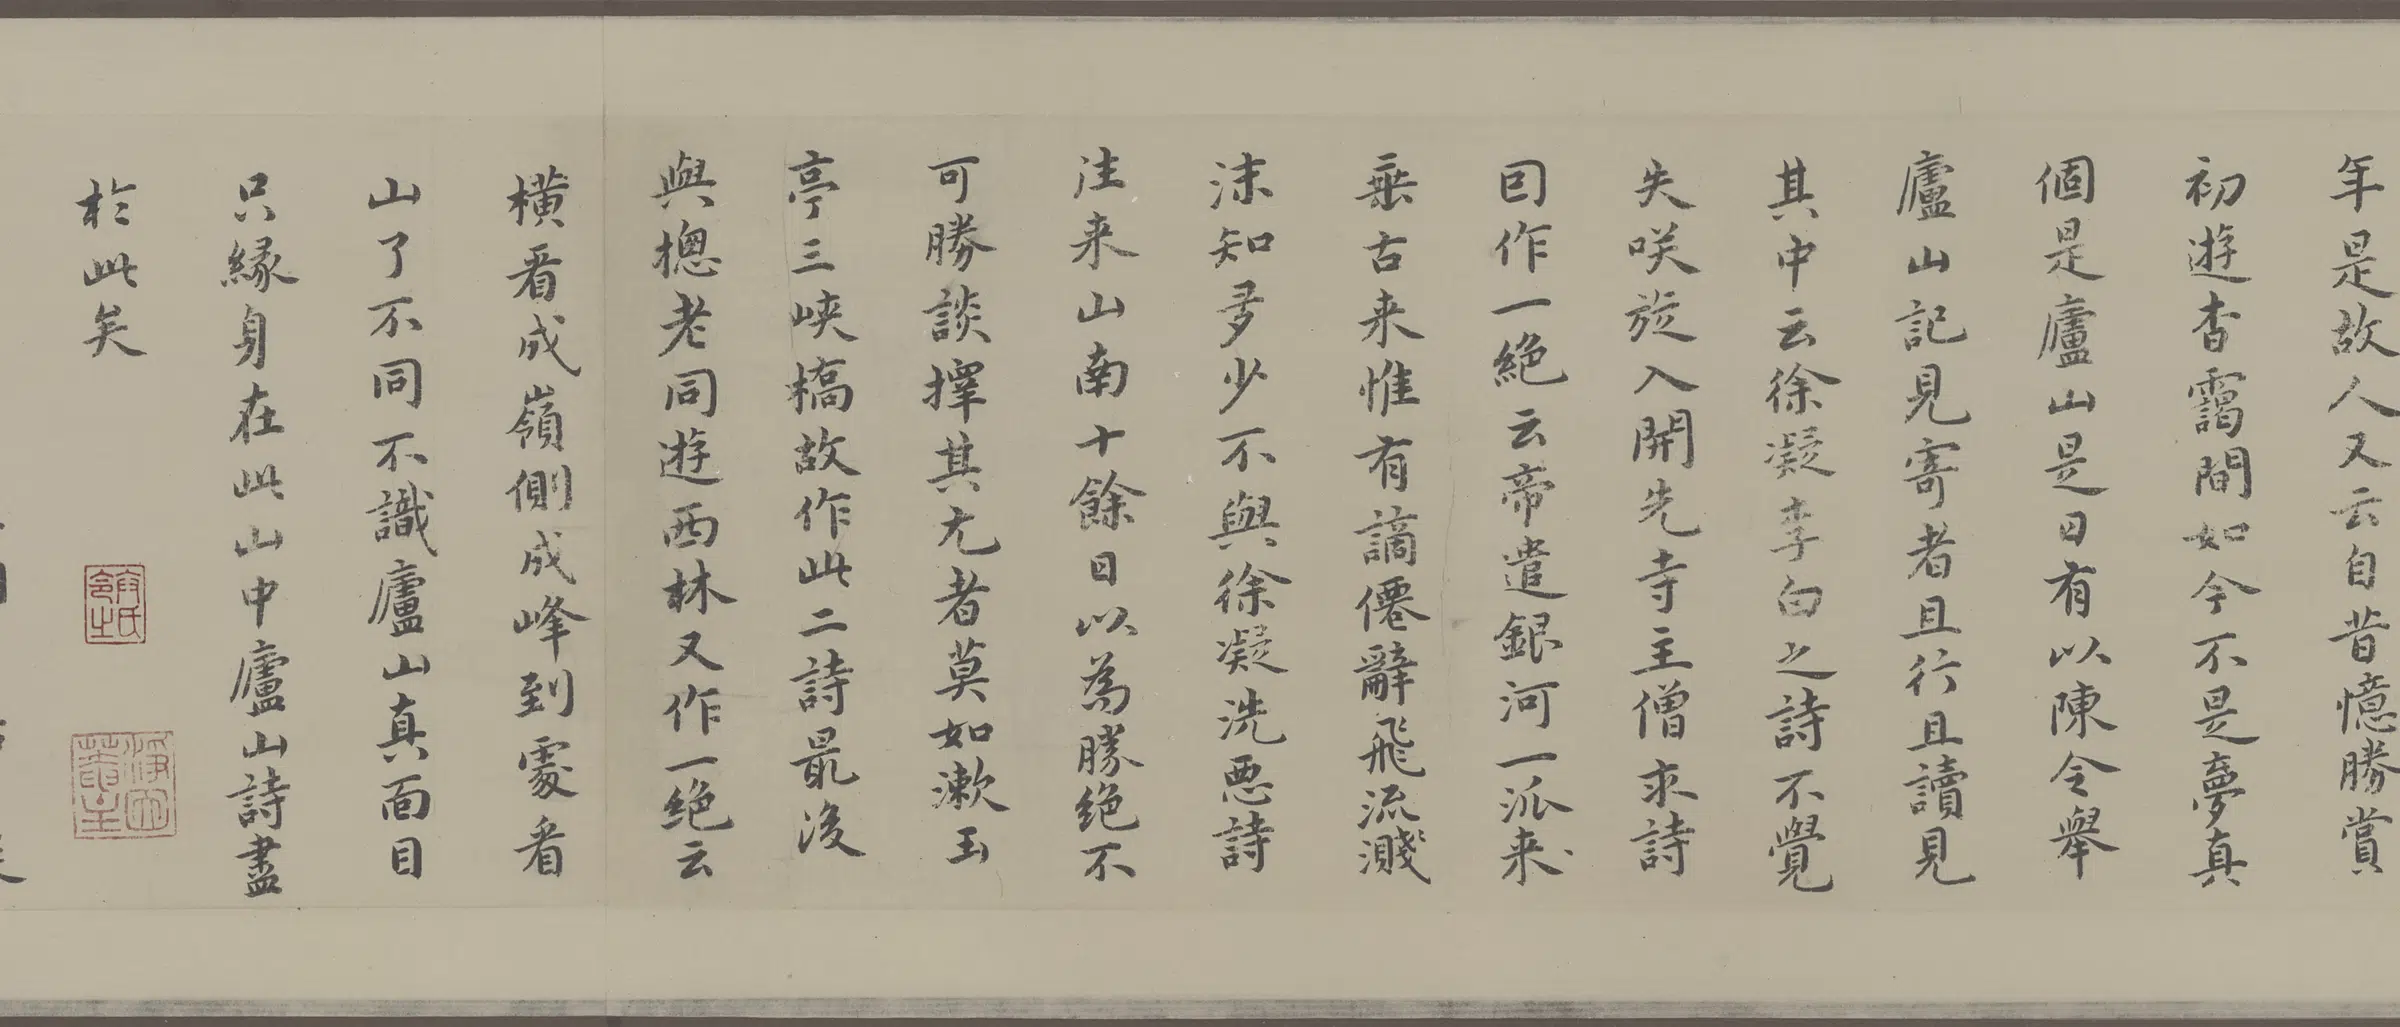 年是故人又云自昔憶勝賞
初遊杳靄間如今不是夢真
個是廬山是日有以陳令舉
廬山記見寄者且行且讀見
其中云徐凝李白之詩不覺
失咲旋入開先寺主僧求詩
囙作一絶云帝遣銀河一派来
垂古来惟有謫僊辭飛流濺
沫知多少不與徐凝洗惡詩
往来山南十餘日以為勝絶不
可勝談擇其尤者莫如漱玉
亭三峽橋故作此二詩最後
與揔老同遊西林又作一絶云
橫看成嶺側成峰到處看
山了不同不識廬山真面目
只緣身在此山中廬山詩盡
於此矣